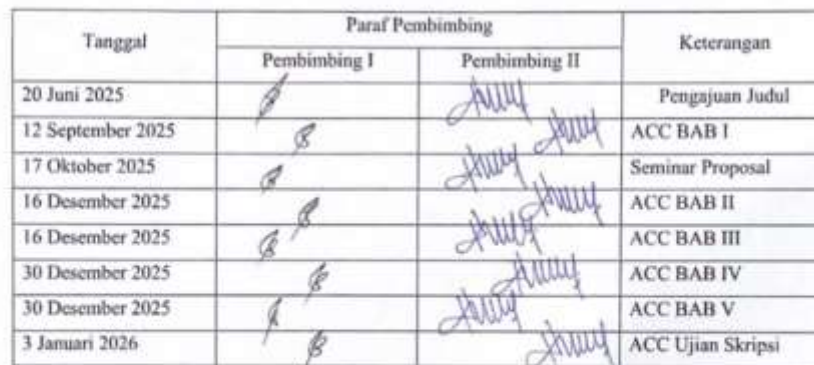 Tanggal Paraf Pembimbing Keterangan
Pembimbing I Pembimbing II
20 Juni 2025 Pengajuan Judul
12 September 2025 ACC BAB I
17 Oktober 2025 Seminar Proposal
16 Desember 2025 ACC BAB II
16 Desember 2025 ACC BAB III
30 Desember 2025 ACC BAB IV
30 Desember 2025 ACC BAB V
3 Januari 2026 ACC Ujian Skripsi